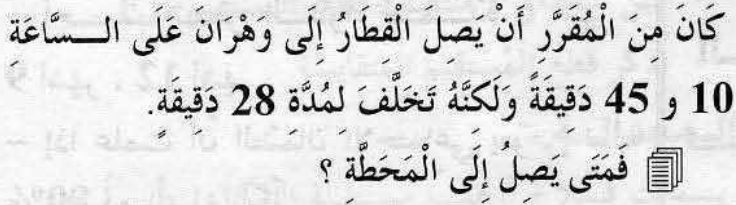 كَانَ مِنَ الْمُقَرَّرِ أَنْ يَصِلَ الْقِطَارُ إِلَى وَهْرَانَ عَلَى الـــسَّاعَةِ
10 و 45 دَقِيقَةً وَلَكنَّهُ تَخَلَّفَ لِمُدَّةِ 28 دَقِيقَةٍ.
فَمَتَى يَصِلُ إِلَى الْمَحَطَّةِ ؟